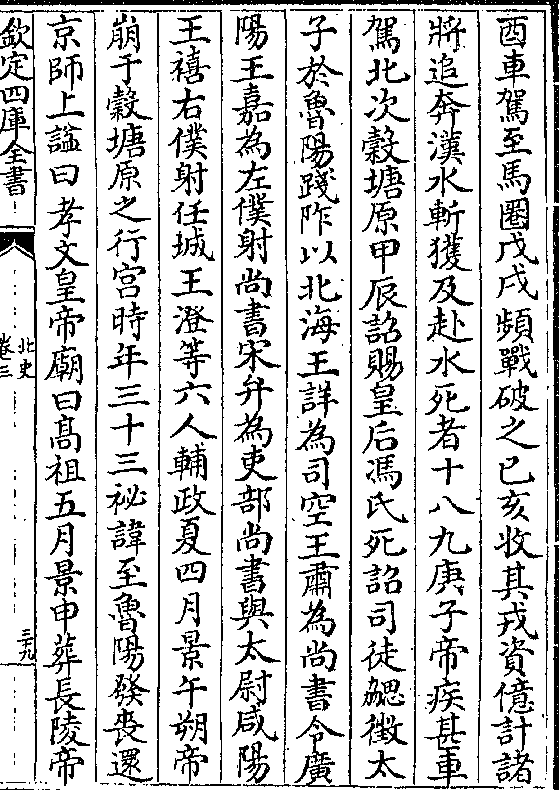 酉車駕至馬圈戊戌頻戰破之己亥收其戎資億計諸
將追奔漢水斬獲及赴水死者十八九庚子帝疾甚車
駕北次穀塘原甲辰詔賜皇后馮氏死詔司徒勰徵太
子於魯陽踐阼以北海王詳為司空王肅為尚書令廣
陽王嘉為左僕射尚書宋弁為吏部尚書與太尉咸陽
王禧右僕射任城王澄等六人輔政夏四月景午朔帝
崩于穀塘原之行宫時年三十三祕諱至魯陽發喪還
京師上諡曰孝文皇帝廟曰髙祖五月景申葬長陵帝
欽定四庫全書
北史
卷三
三九